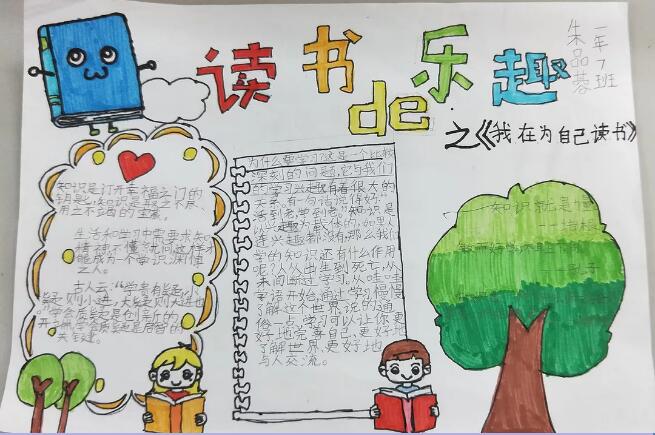 读书de乐趣
之《我在为自己读书》
一年7班
朱品蓉
知识是打开幸福之门的
钥匙,知识是取之不尽,
用之不竭的宝藏。
生活和学习中需要求知
精神,不懂就问这样才
能成为一个学识渊博
之人。
古人云:“学贵有疑,小
疑则小进,大疑则大进也。
学会质疑是创新的
开始,学会质疑是启智的
关键。
为什么要学习?这是一个比较
深刻的问题,它与我们
的学习兴趣有着很大的
关系,有一句话说得好“
活到老,学到老”知识是
以兴趣为载体的,如果
连兴趣都没有,那么我们
学的知识还有什么作用
呢?人从出生到死亡,从
未间断过学习,从呀呀
学语开始,通过学习慢慢
了解这个世界,说的通
俗一点,学习可以让你更
好地完善自己,更好地
了解世界,更好地
与人交流。
知识就是